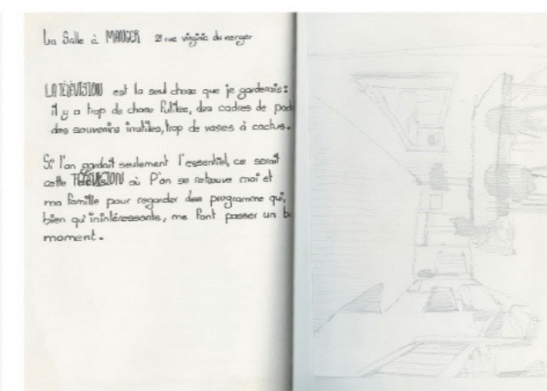 La Salle à MANGER 21 rue virginie du verger
LA TÉLÉVISION est la seul chose que je garderais :
il y a trop de chose futiles, des cadres de
des souvenirs inutiles, trop de vases à cactus.
Si l'on gardait seulement l'essentiel, ce serait
cette TÉLÉVISION où l'on se retrouve moi et
ma famille pour regarder des programme qui,
bien qu'inintéressants, me font passer un
moment.